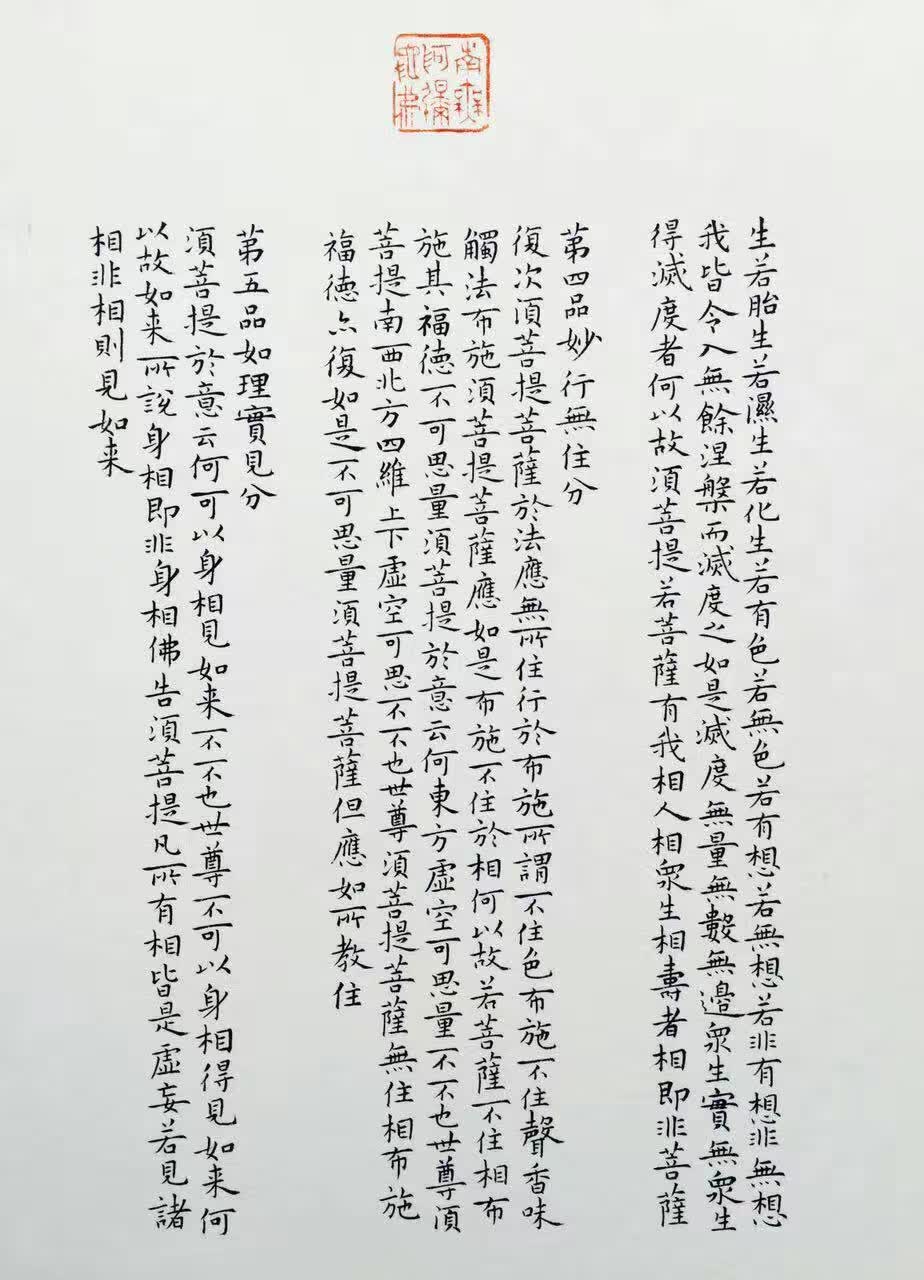 南無
阿彌
陀佛
生若胎生若濕生若化生若有色若無色若有想若無想若非有想非無想
我皆令入無餘涅槃而滅度之如是滅度無量無數無邊眾生實無眾生
得滅度者何以故須菩提若菩薩有我相人相眾生相壽者相即非菩薩
第四品妙行無住分
復次須菩提菩薩於法應無所住行於布施所謂不住色布施不住聲香味
觸法布施須菩提菩薩應如是布施不住於相何以故若菩薩不住相布
施其福德不可思量須菩提於意云何東方虛空可思量不不也世尊須
菩提南西北方四維上下虛空可思不不也世尊須菩提菩薩無住相布施
福德亦復如是不可思量須菩提菩薩但應如所教住
第五品如理實見分
須菩提於意云何可以身相見如来不不也世尊不可以身相得見如来何
以故如来所說身相即非身相佛告須菩提凡所有相皆是虛妄若見諸
相非相則見如来